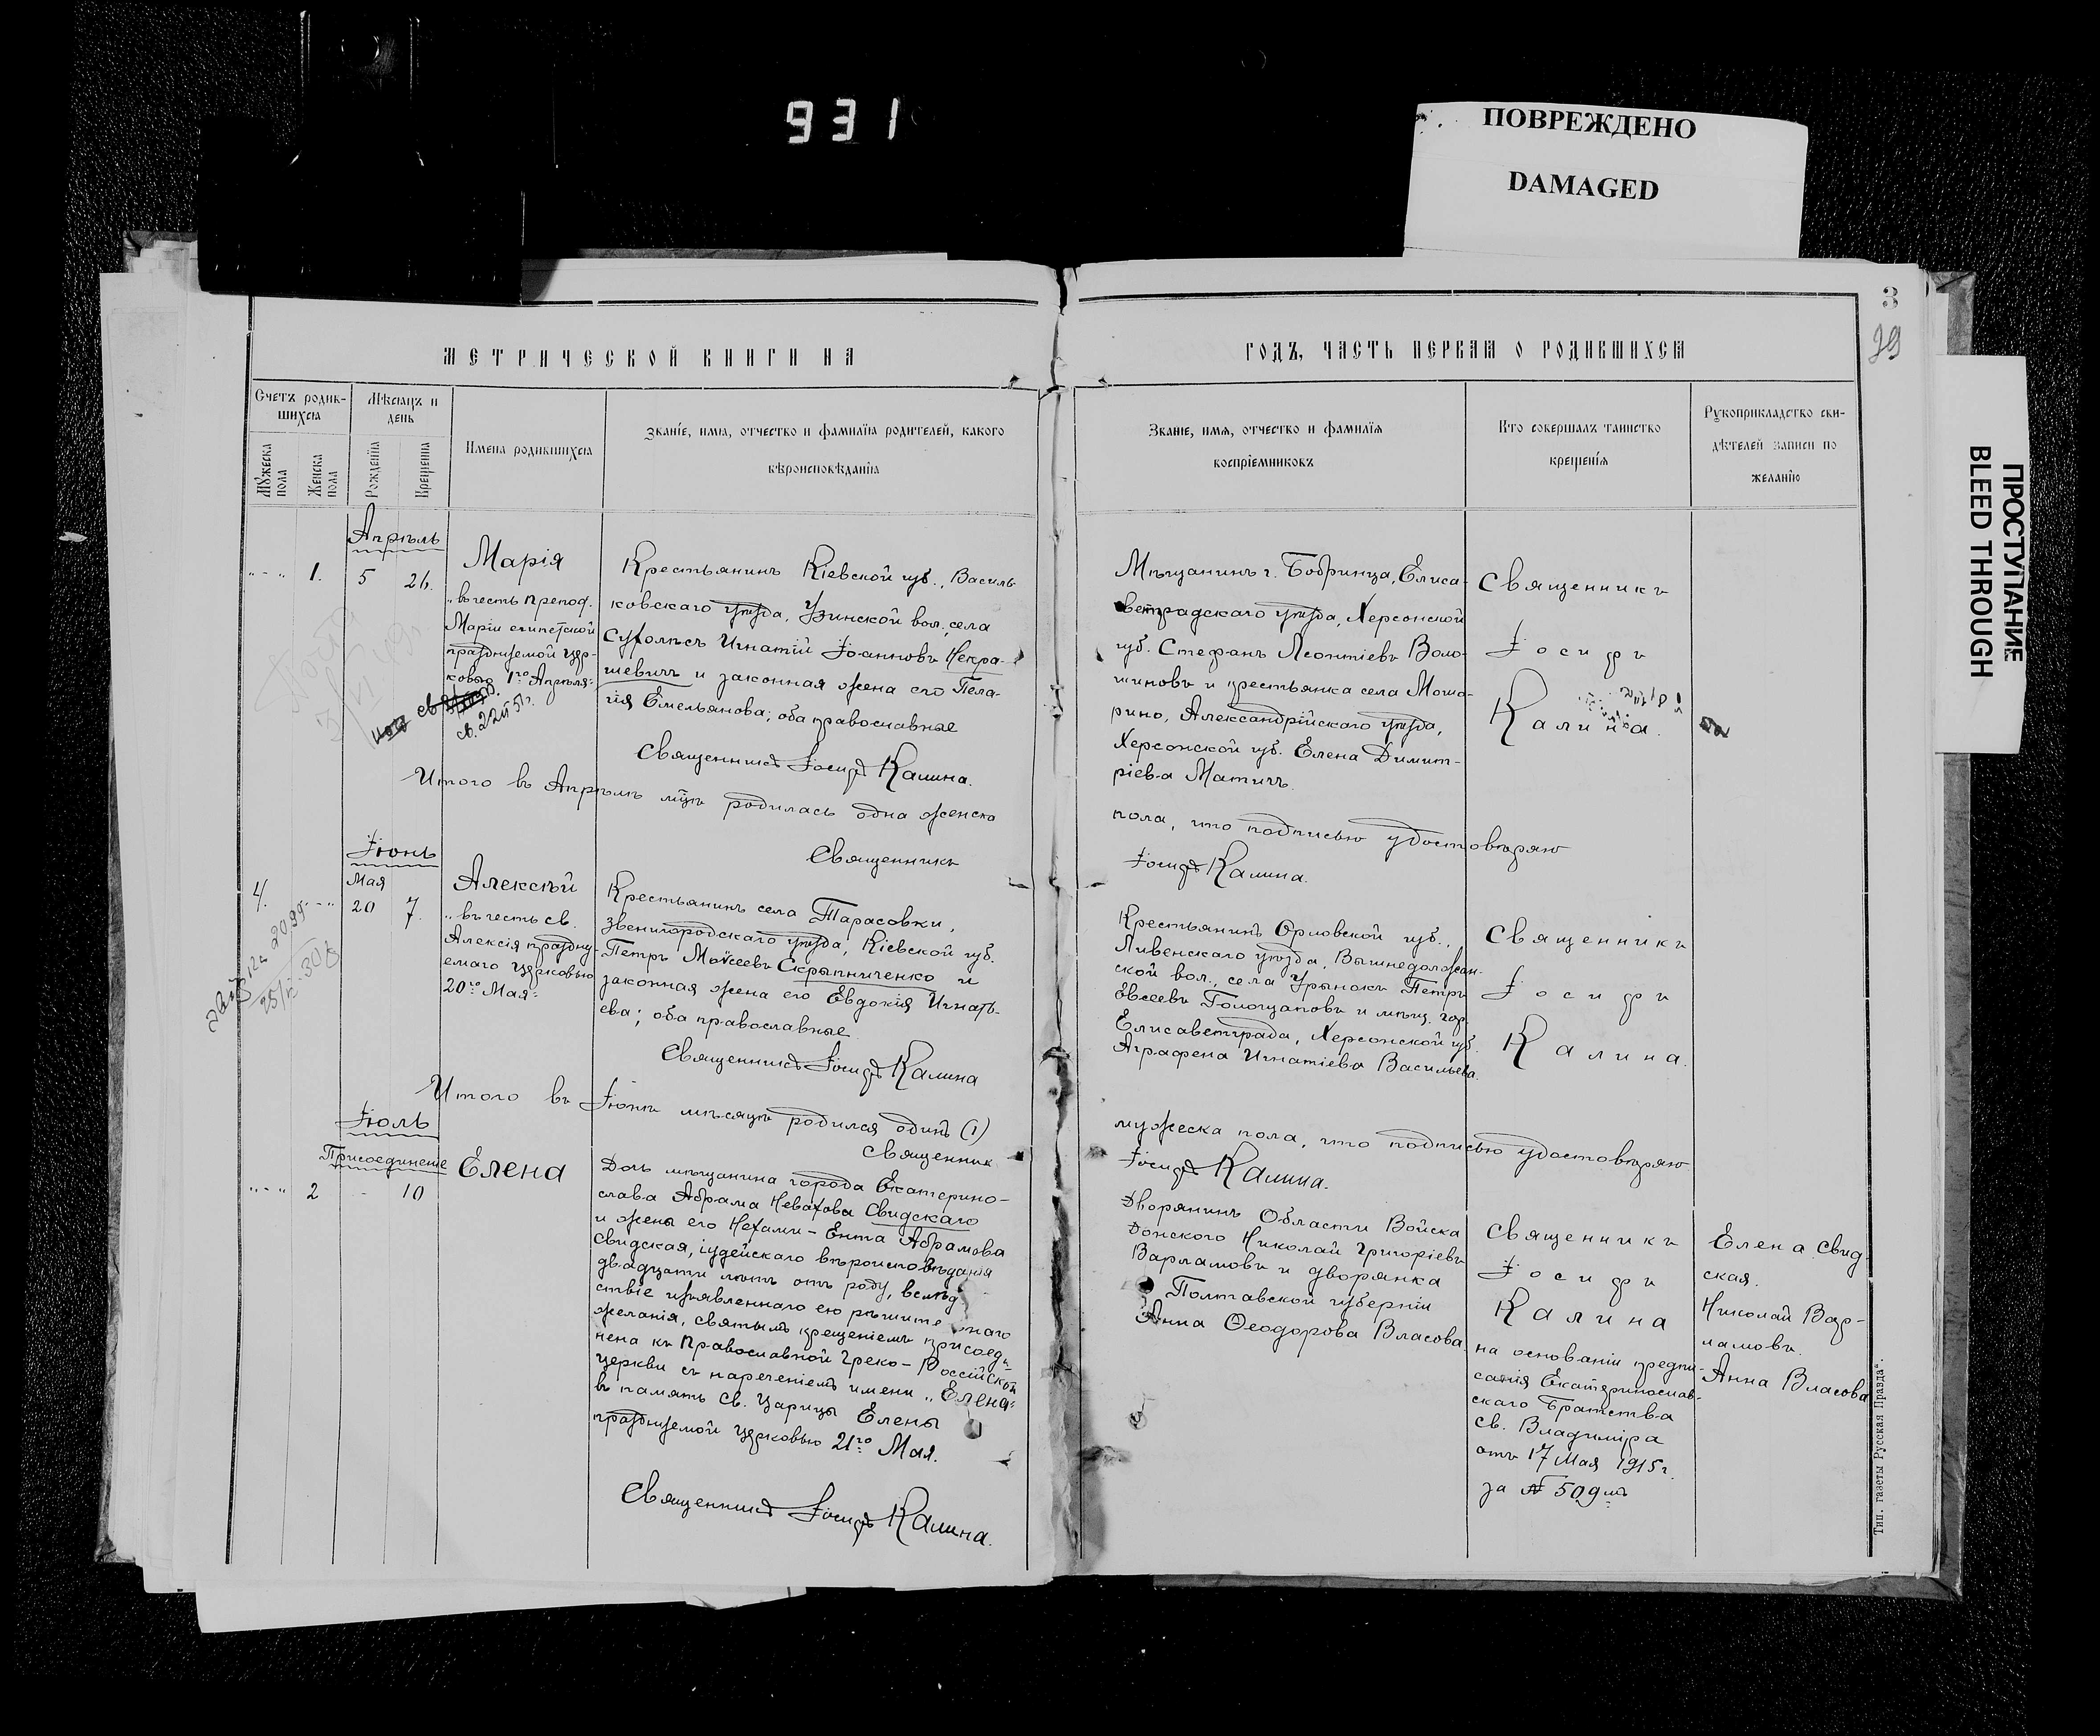 931
ПОВРЕЖДЕНО
DAMAGED
ПРОСТУПАНИЕ
BLEED THROUGH
3
39
МЕТРИЧЕСКОЙ КНИГИ НА
ГОДЪ, ЧАСТЬ ПЕРВАЯ О РОДИВШИХСЯ
Счетъ родив-
шихся
Мужеска
пола
Женска
пола
Мѣсяцъ и
день
Рожденїя
Крещенїя
Имена родившихся
Званїе, имя, отчество и фамилїя родителей, какого
вѣроисповѣданїя
Званїе, имя, отчество и фамилїя
воспрїемниковъ
Кто совершалъ таинство
крещенїя
Рукоприкладство сви-
дѣтелей записи по
желанїю
Апрѣль
" - " 1. 5 26.
Марія
"въ честь препод.
Маріи египетской
празднуемой цер-
ковью 1го Апрѣля"
Крестьянинъ Кіевской губ., Василь-
ковскаго уѣзда, Узинской вол., села
Сухолѣсъ Игнатій Іоанновъ Некра-
шевичъ и законная жена его Пела-
гія Емельянова; оба православные
Священникъ Іосифъ Калина.
Мѣщанинъ г. Бобринца, Елиса-
ветградскаго уѣзда, Херсонской
губ. Стефанъ Леонтіевъ Воло-
шиновъ и крестьянка села Мошо-
рино, Александрійскаго уѣзда,
Херсонской губ. Елена Димит-
ріева Матичъ.
Священникъ
Іосифъ
Калина.
Итого въ Апрѣлѣ мцѣ родилась одна женска
пола, что подписью удостовѣряю
Священникъ
Іосифъ Калина.
Іюнь
Мая
4. " - " 20 7.
Алексѣй
"въ честь св.
Алексія праздну-
емаго церковью
20го Мая"
Крестьянинъ села Тарасовки,
Звенигородскаго уѣзда, Кіевской губ.
Петръ Моѵсеевъ Скрыпниченко и
законная жена его Евдокія Игнать-
ева; оба православные
Священникъ Іосифъ Калина
Крестьянинъ Орловской губ.,
Ливенскаго уѣзда, Вышнедолжан-
ской вол., села Урынокъ Петръ
Евсеевъ Голощаповъ и мѣщ. гор.
Елисаветграда, Херсонской губ.
Аграфена Игнатіева Васильева.
Священникъ
Іосифъ
Калина.
Итого въ Іюнѣ мѣсяцѣ родился одинъ (1)
мужеска пола, что подписью удостовѣряю
Священник
Іосифъ Калина.
Іюль
Присоединеніе
" - " 2 - 10
Елена
Дочь мѣщанина города Екатерино-
слава Абрама Невахова Свидскаго
и жены его Нехами-Ента Абрамова
Свидская, іудейскаго вѣроисповѣданія
двадцати лѣтъ отъ роду, вслѣд-
ствіе изъявленнаго ею рѣшите наго
желанія, святымъ крещеніемъ присоеди
нена къ Православной Греко-Россійской
церкви съ нареченіемъ имени "Елена"
въ память Св. Царицы Елены
празднуемой церковью 21го Мая.
Священникъ Іосифъ Калина.
Дворянинъ Области Войска
Донского Николай Григоріевъ
Варламовъ и дворянка
Полтавской губерніи
Анна Ѳеодорова Власова.
Священникъ
Іосифъ
Калина
на основаніи предпи-
санія Екатеринослав-
скаго Братства
Св. Владиміра
отъ 17 Мая 1915 г.
за № 509мъ
Елена Свид-
ская.
Николай Вар-
ламовъ.
Анна Власова
Тип. газеты „Русская Правда“.